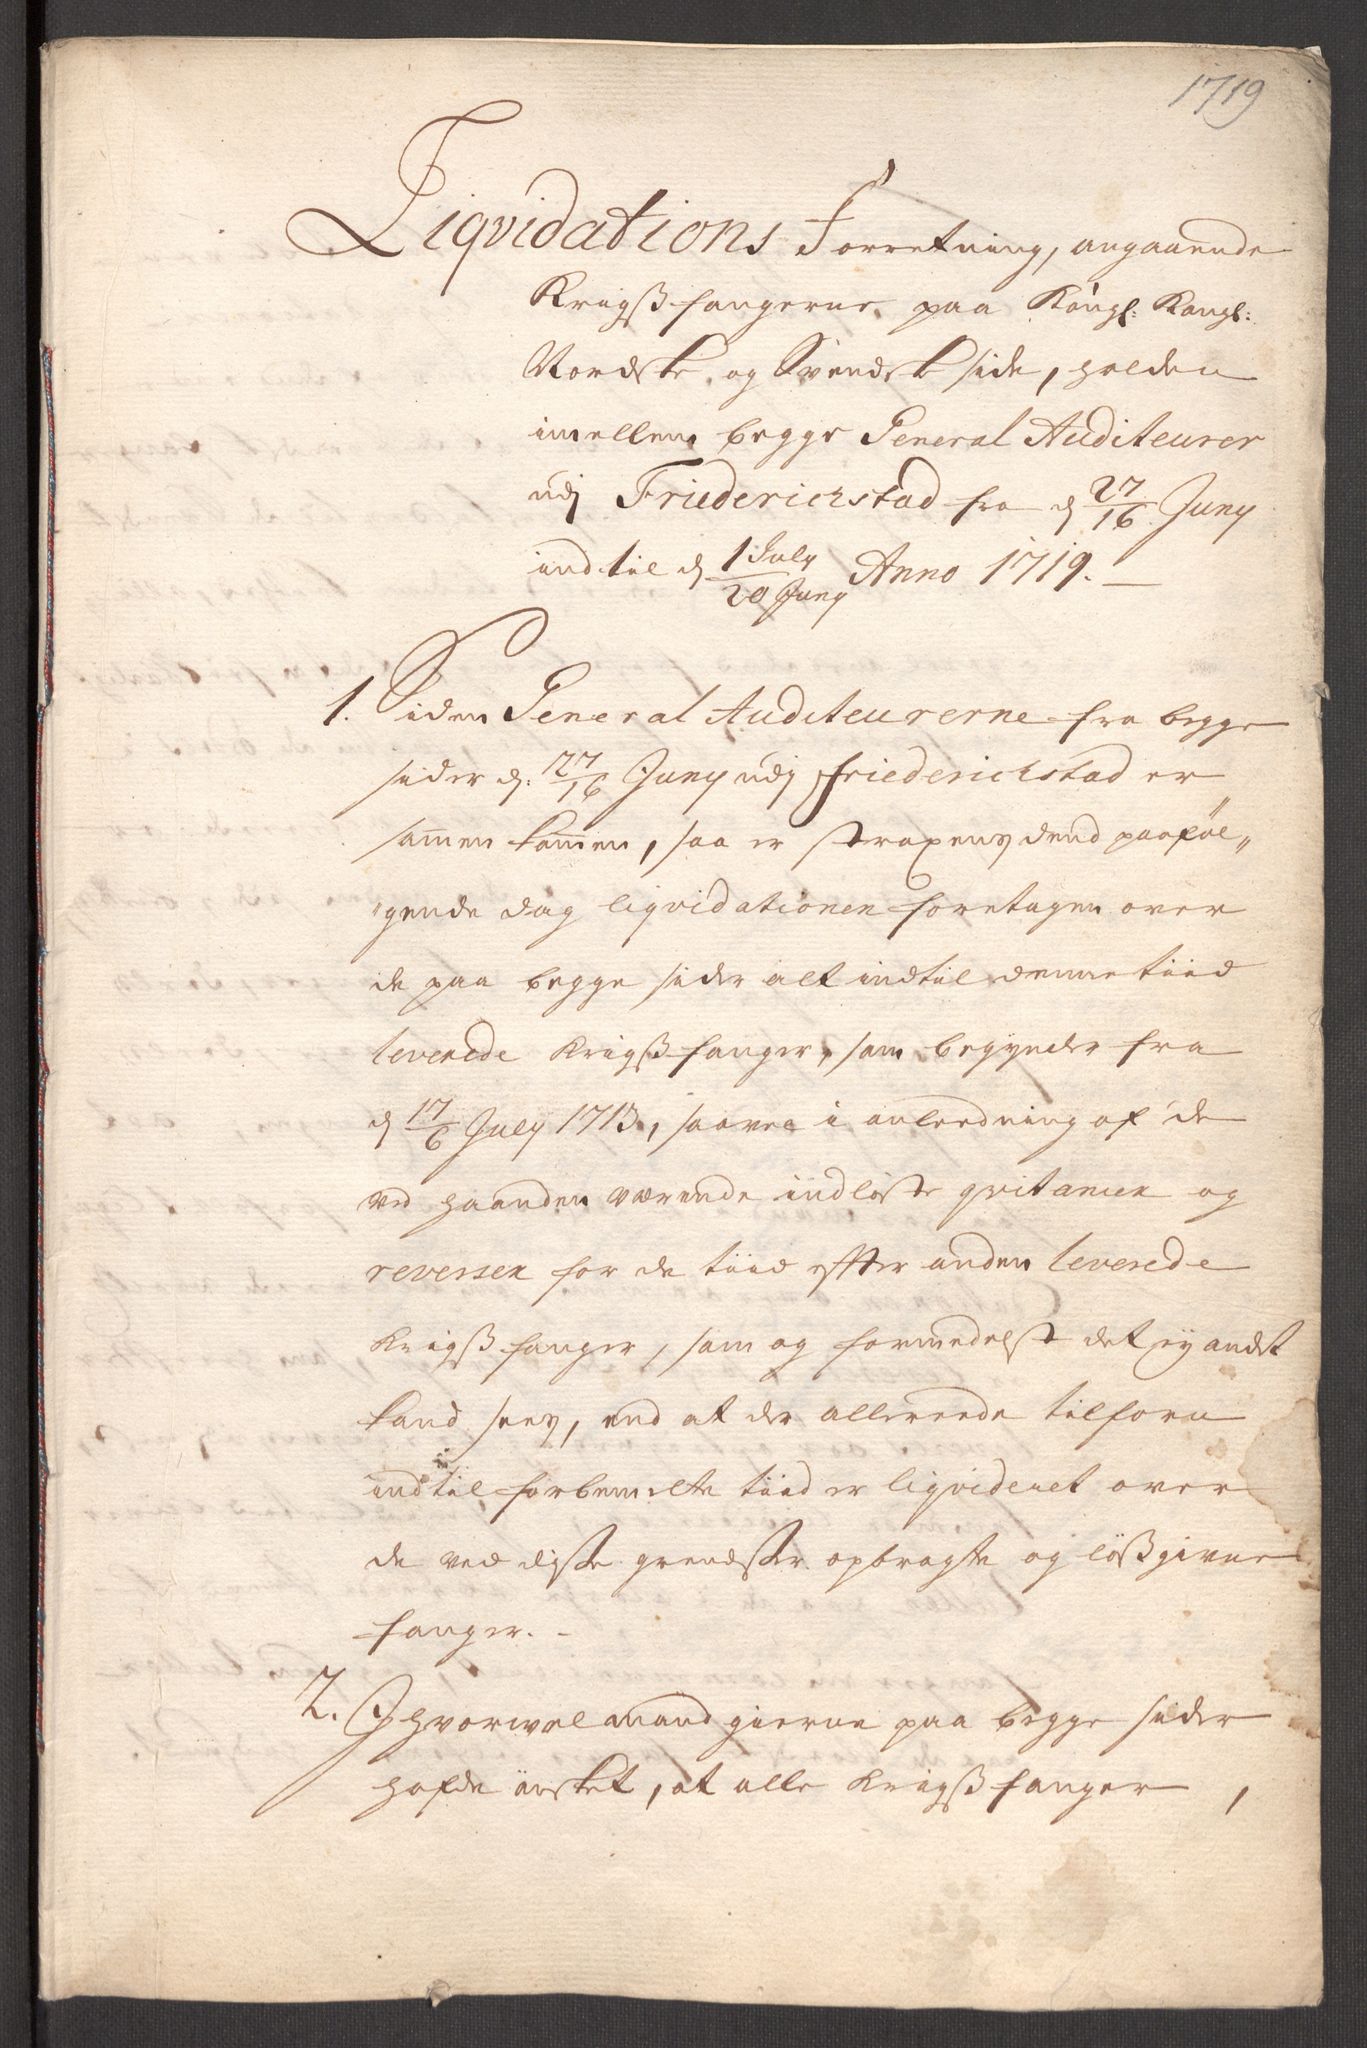 1719
Liqvidations Forretning, angaaende
Krigsfangerne paa Kongl: Kongl:
Nordske og Svendsk side, holden
imellem begge General Auditeurer
udj Friederichstad fra d 27/16 Juny
indtil d 1 July/20 Juny Anno 1719.
1. Siden General Auditeurerne fra begge
sider d: 27/16 Juny udj Friederichstad er
sammen kommen, saa er straxens dend paaføl„
„gende dag liqvidationen foretagen over
de paa begge sider alt indtil denne tiid
leverede Krigsfanger, som begynder fra
d 17/6 July 1713, saavel i anledning af de
ved haanden værende indløste qvitancier og
reverser for de tiid efter anden leverede
Krigsfanger, som og formedelst det ey andet
kand sees, end at der allereede tilforn
indtil forbemelte tiid er liqvideret over
de ved disse grendser opbragte og løsgivne
fanger.
2. Ihvorvel mand gierne paa begge sider
hafde ønsket, at alle Krigsfanger